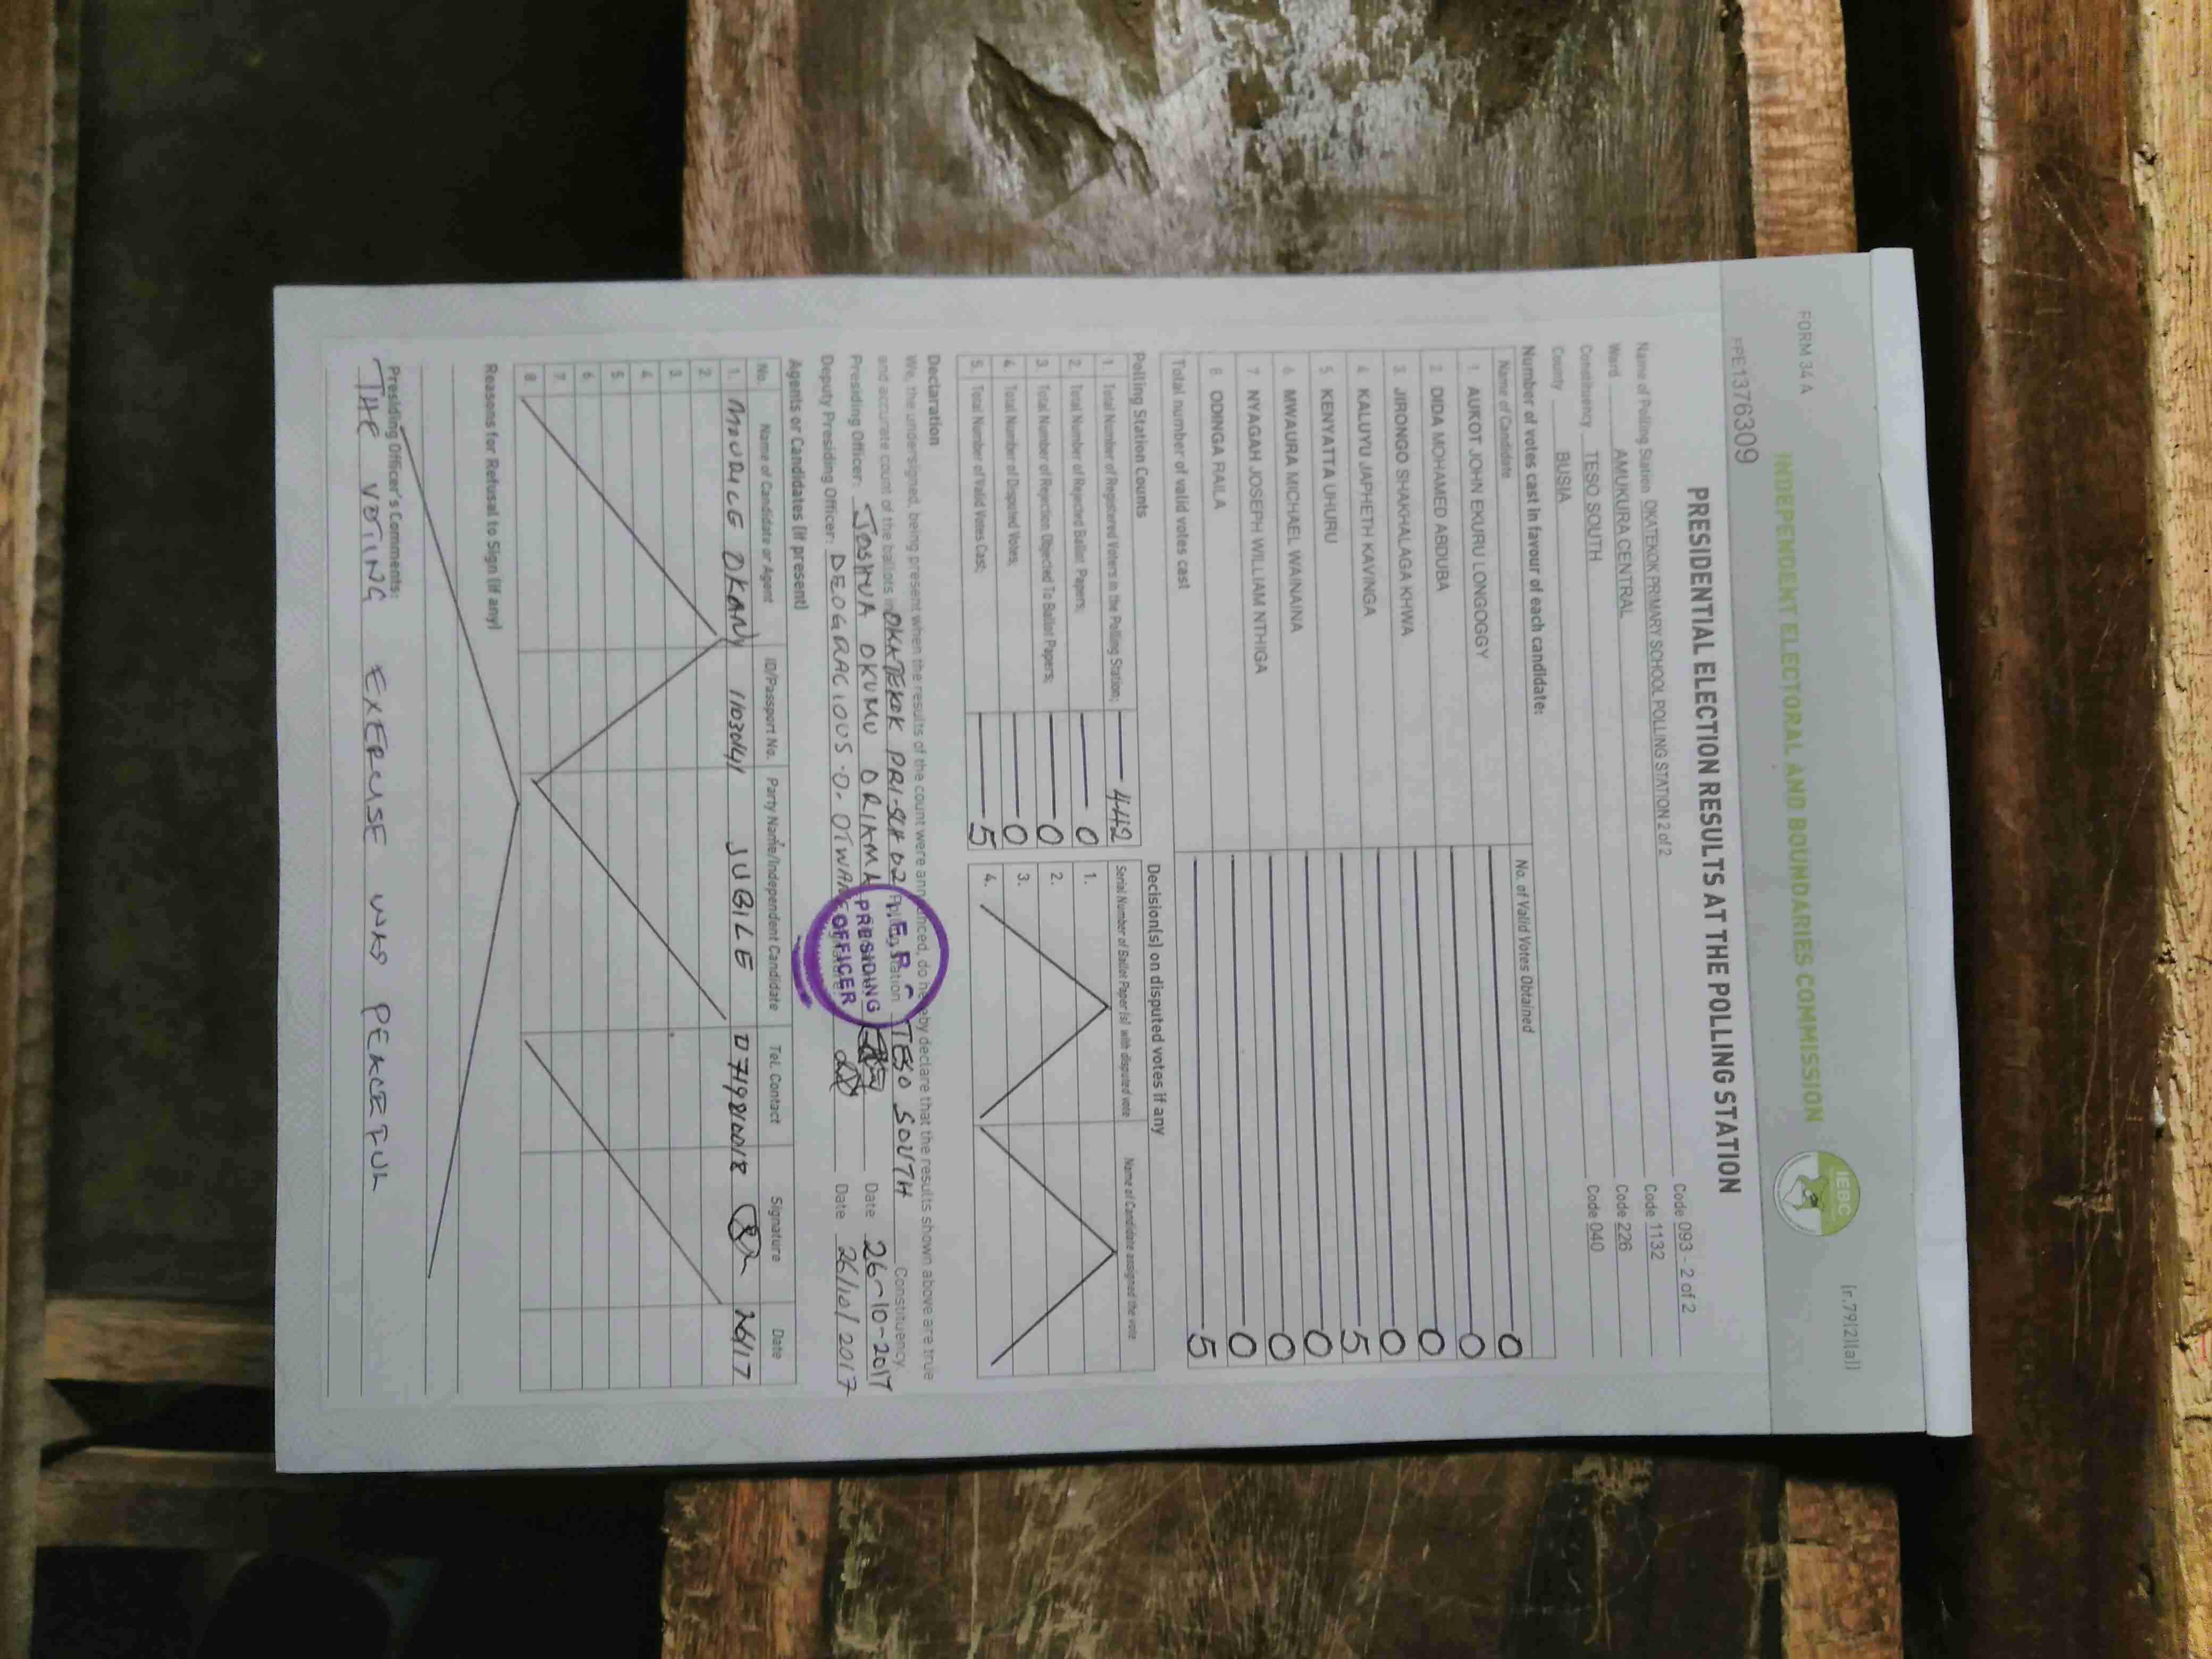 FORM 34 A
(r.79(2)(a))
INDEPENDENT ELECTORAL AND BOUNDARIES COMMISSION
IEBC
PPE1376309
PRESIDENTIAL ELECTION RESULTS AT THE POLLING STATION
Name of Polling Station OKATEKOK PRIMARY SCHOOL POLLING STATION 2 of 2 Code 093 - 2 of 2
Ward AMUKURA CENTRAL Code 1132
Constituency TESO SOUTH Code 226
County BUSIA Code 040
Number of votes cast in favour of each candidate:
Name of Candidate No. of Valid Votes Obtained
1. AUKOT JOHN EKURU LONGOGGY 0
2. DIDA MOHAMED ABDUBA 0
3. JIRONGO SHAKHALAGA KHWA 0
4. KALUYU JAPHETH KAVINGA 0
5. KENYATTA UHURU 5
6. MWAURA MICHAEL WAINAINA 0
7. NYAGAH JOSEPH WILLIAM NTHIGA 0
8. ODINGA RAILA 0
Total number of valid votes cast 5
Polling Station Counts
1. Total Number of Registered Voters in the Polling Station; 442
2. Total Number of Rejected Ballot Papers; 0
3. Total Number of Rejection Objected To Ballot Papers; 0
4. Total Number of Disputed Votes; 0
5. Total Number of Valid Votes Cast; 5
Decision(s) on disputed votes if any
Serial Number of Ballot Paper (s) with disputed vote Name of Candidate assigned the vote
1.
2.
3.
4.
Declaration
We, the undersigned, being present when the results of the count were announced, do hereby declare that the results shown above are true
and accurate count of the ballots in OKATEKOK PRI-SCH 02 Polling Station TESO SOUTH Constituency.
Presiding Officer: JOSHUA OKUMU Date 26-10-2017
Deputy Presiding Officer: DEOGRACIOUS .O. Date 26/10/2017
PRESIDING
OFFICER
Agents or Candidates (if present)
No. Name of Candidate or Agent ID/Passport No. Party Name/Independent Candidate Tel. Contact Signature Date
1. MAURICE OKANY 11030141 JUBILE 26/17
2.
3.
4.
5.
6.
7.
8.
Reasons for Refusal to Sign (if any)
Presiding Officer's Comments:
THE VOTING EXERCISE WAS PEACEFUL